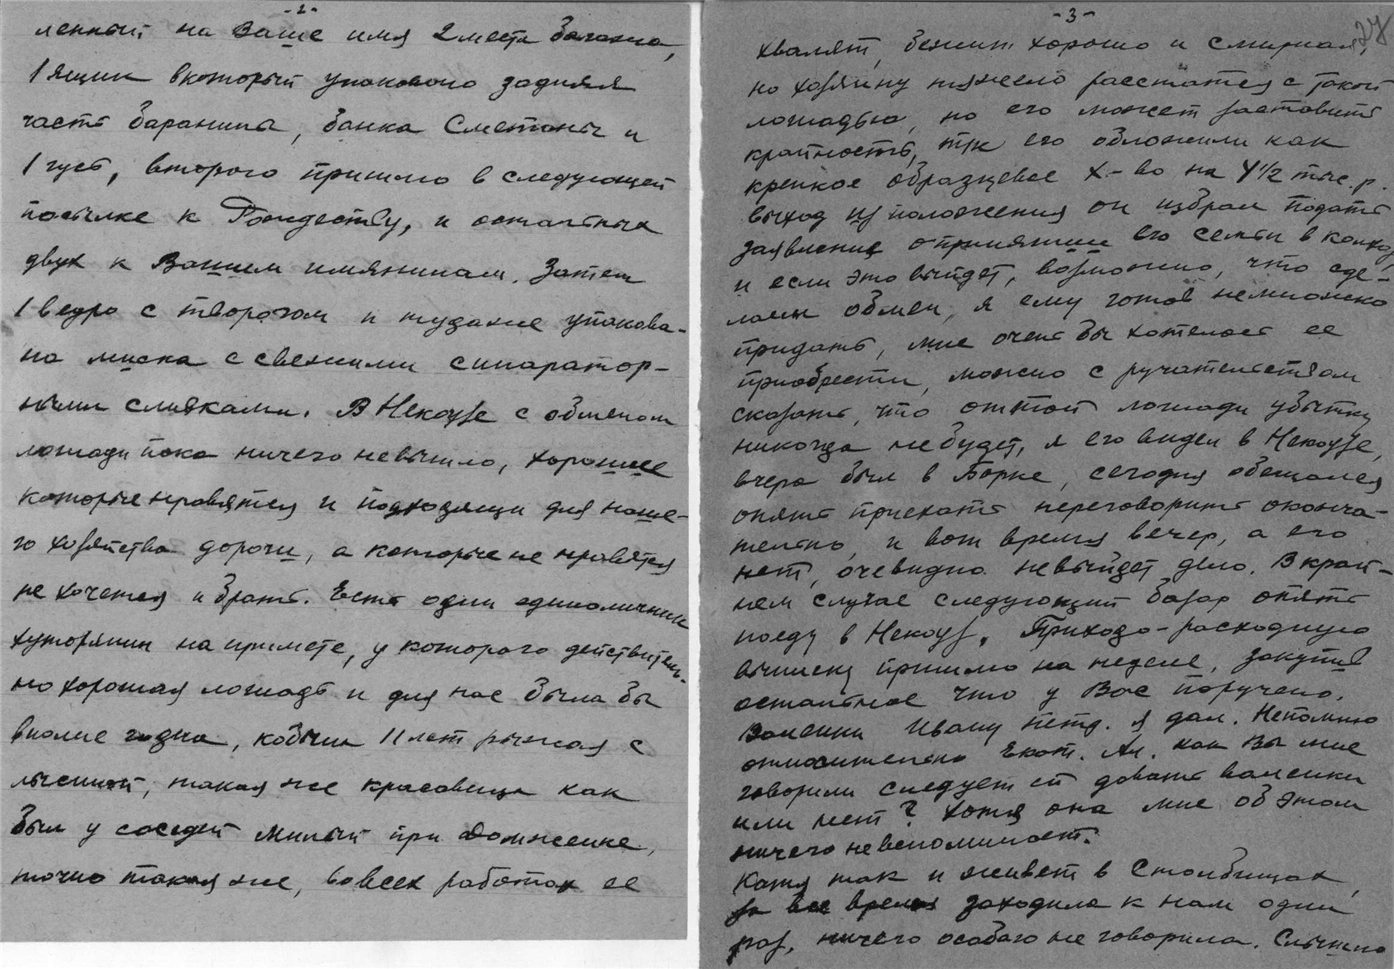 -2-
ленный на Ваше имя 2 места багажа,
1 ящик в который упаковано задняя
часть баранины, банка Сметаны и
1 гусь, второго пришлю в следующей
посылке к Рождеству, и остальных
двух к Вашем имянинам. Затем
1 ведро с творогом и туда же упакова-
но миска с свежими сипаратор-
ными сливками. В Некоузе с обменом
лошади пока ничего невышло, хорошие
которые нравятся и подходящи для наше-
го хозяйства дороги, а которые не нравятся
не хочется и брать. Есть один единоличник
хуторянин на примете, у которого действитель-
но хорошая лошадь и для нас была бы
вполне годна, кобыла 11 лет рыжая с
лысиной, такая же красавица как
был у соседей милый при Домженке,
точно такая же, во всех работах ее
-3-
27
хвалят, бежит хорошо и смирная,
но хозяину тяжело расстатся с такой
лошадью, но его может заставить
кратность, т/к его обложили как
крепкое образцевое х-во на 4 1/2 тыс. р.
выход из положения он избрал подать
заявление о принятии его семьи в колхоз
и если это выйдет, возможно, что сде-
лаем обмен, я ему готов немножко
придать, мне очень бы хотелось ее
приобрести, можно с ручательством
сказать, что от той лошади убытку
никогда не будет, я его видел в Некоузе,
вчера был в Борке, сегодня обещался
опять приехать переговорить оконча-
тельно, и вот время вечер, а его
нет, очевидно невыйдет дело. В край-
нем случае следующий базар опять
поеду в Некоуз. Приходо-расходную
выписку пришлю на неделе, закупив
остальное что у Вас поручено.
Валенки Ивану Петр. я дал. Непомню
относительно Екат. Ал. как Вы мне
говорили следует ей давать валенки
или нет? Хотя она мне об этом
ничего невспоминает.
Катя так и живет в Столбищах,
за все время заходила к нам один
раз, ничего особаго не говорила. Слышно